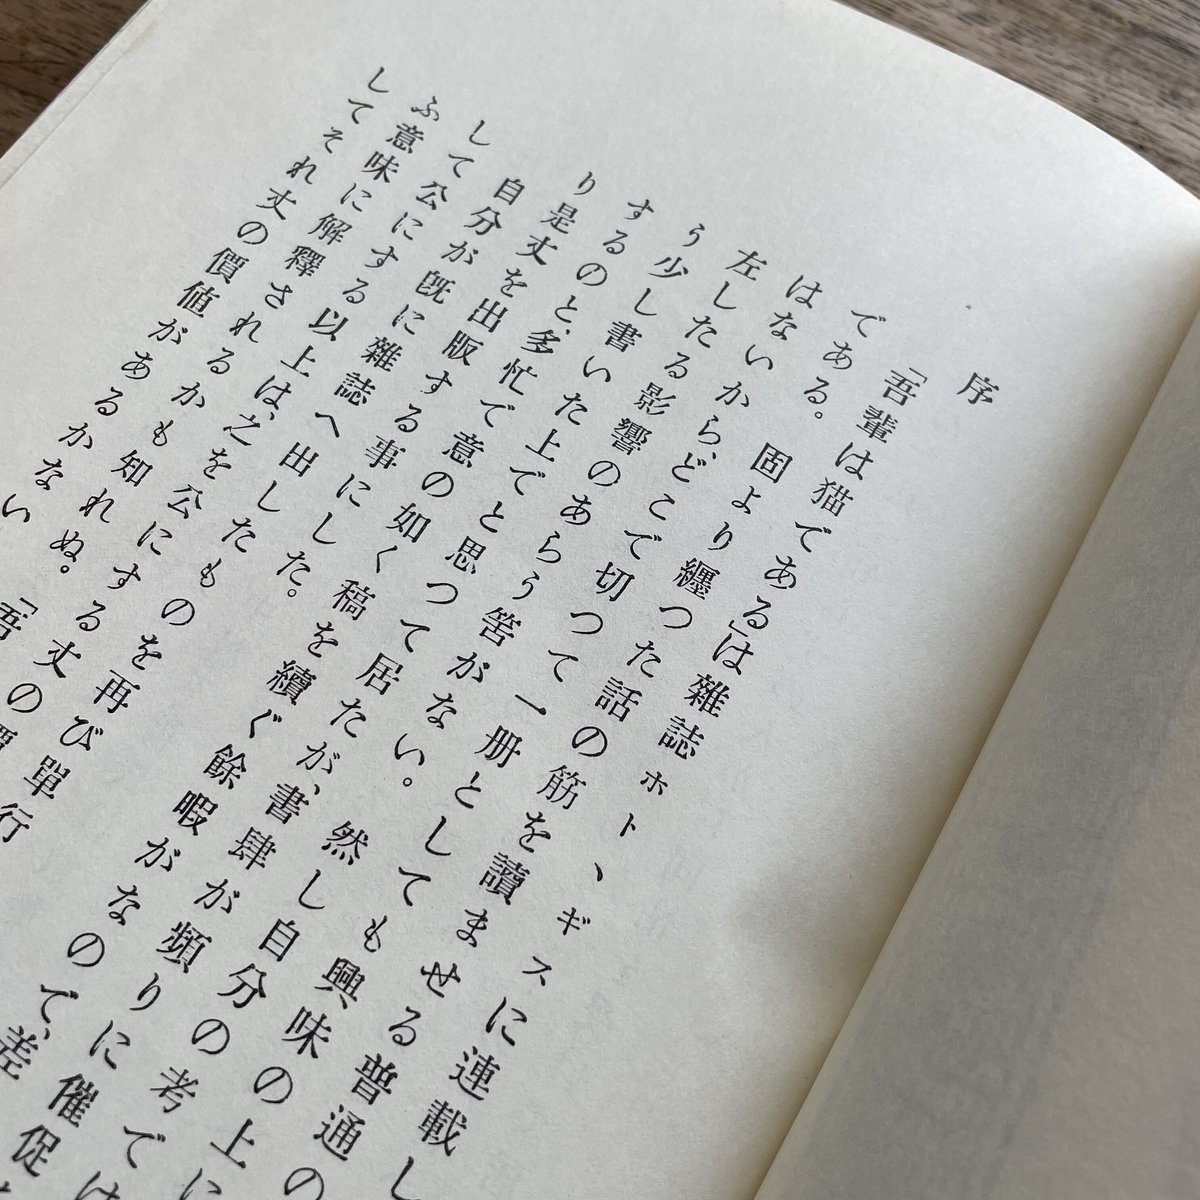 序
「吾輩は猫である」は雜誌ホトヽギスに連載し
である。固より纏つた話の筋を讀ませる普通の
はないから、どこで切つて一册としても興味の上に
左したる影響のあらう筈がない。然し自分の考では
う少し書いた上でと思つて居たが、書肆が頻りに催促
するのと、多忙で意の如く稿を續ぐ餘暇がなので、差
り是丈を出版する事にした。
自分が既に雜誌へ出したものを再び單行
して公にする以上は、之を公にする丈の價
ふ意味に解釋されるかも知れぬ。「吾
してそれ丈の價値があるかない